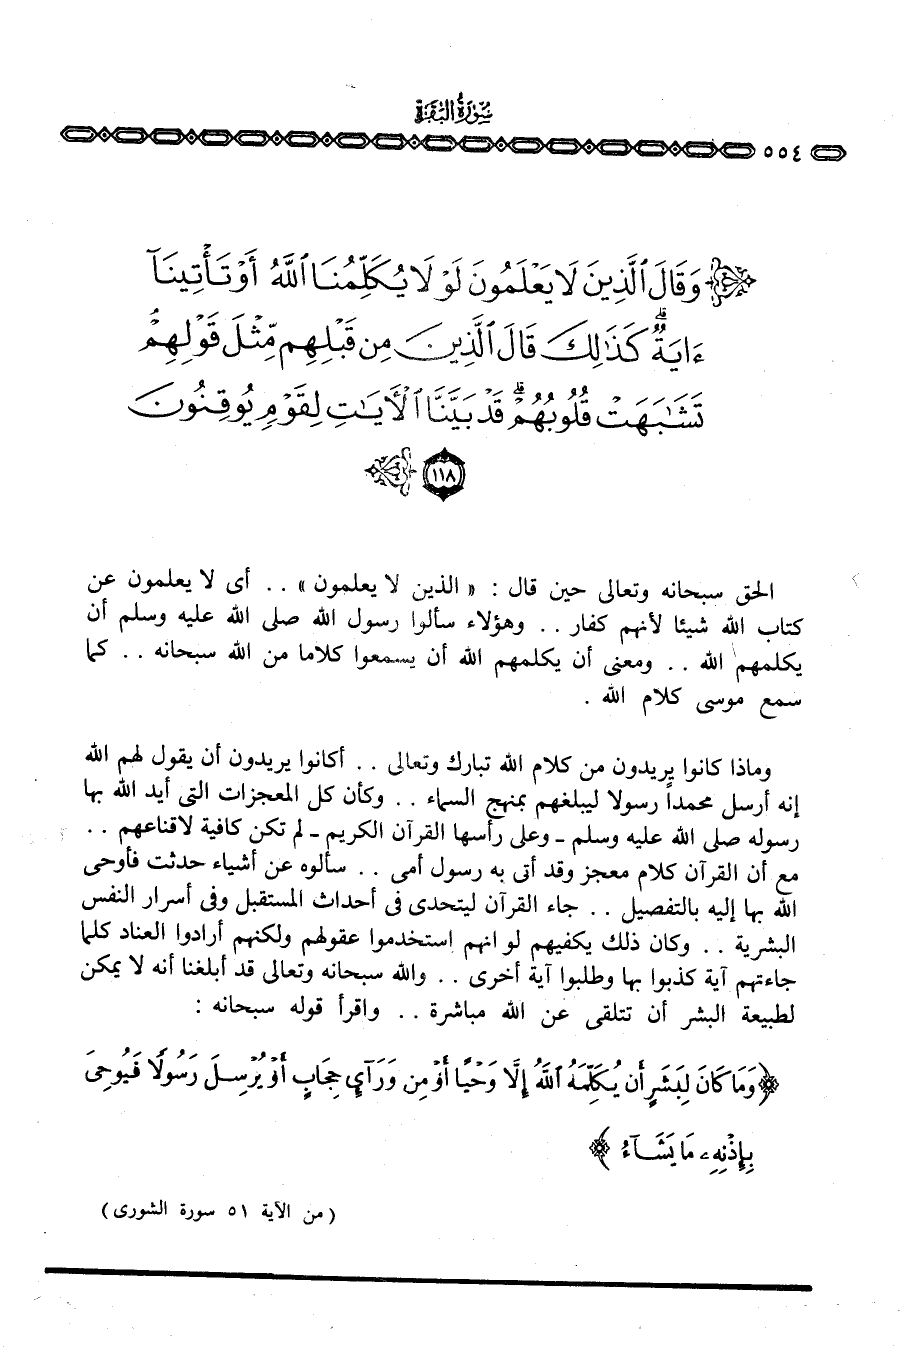 سُورَةُ البَقَرَة
٥٥٤
وَقَالَ ٱلَّذِينَ لَا يَعْلَمُونَ لَوْلَا يُكَلِّمُنَا ٱللَّهُ أَوْ تَأْتِينَآ
ءَايَةٌ ۗ كَذَٰلِكَ قَالَ ٱلَّذِينَ مِن قَبْلِهِم مِّثْلَ قَوْلِهِمْ ۘ
تَشَٰبَهَتْ قُلُوبُهُمْ ۗ قَدْ بَيَّنَّا ٱلْأَيَٰتِ لِقَوْمٍ يُوقِنُونَ
١١٨
الحق سبحانه وتعالى حين قال : « الذين لا يعلمون » . . أى لا يعلمون عن
كتاب الله شيئا لأنهم كفار . . وهؤلاء سألوا رسول الله صلى الله عليه وسلم أن
يكلمهم الله . . ومعنى أن يكلمهم الله أن يسمعوا كلاما من الله سبحانه . . كما
سمع موسى كلام الله .
وماذا كانوا يريدون من كلام الله تبارك وتعالى . . أكانوا يريدون أن يقول لهم الله
إنه أرسل محمداً رسولا ليبلغهم بمنهج السماء . . وكأن كل المعجزات التى أيد الله بها
رسوله صلى الله عليه وسلم ـ وعلى رأسها القرآن الكريم ـ لم تكن كافية لاقناعهم . .
مع أن القرآن كلام معجز وقد أتى به رسول أمى . . سألوه عن أشياء حدثت فأوحى
الله بها إليه بالتفصيل . . جاء القرآن ليتحدى فى أحداث المستقبل وفى أسرار النفس
البشرية . . وكان ذلك يكفيهم لو انهم استخدموا عقولهم ولكنهم أرادوا العناد كلما
جاءتهم آية كذبوا بها وطلبوا آية أخرى . . والله سبحانه وتعالى قد أبلغنا أنه لا يمكن
لطبيعة البشر أن تتلقى عن الله مباشرة . . واقرأ قوله سبحانه :
﴿ وَمَا كَانَ لِبَشَرٍ أَن يُكَلِّمَهُ ٱللَّهُ إِلَّا وَحْيًا أَوْ مِن وَرَآىِٕ حِجَابٍ أَوْ يُرْسِلَ رَسُولًا فَيُوحِىَ
بِإِذْنِهِۦ مَا يَشَآءُ ﴾
( من الآية ٥١ سورة الشورى )